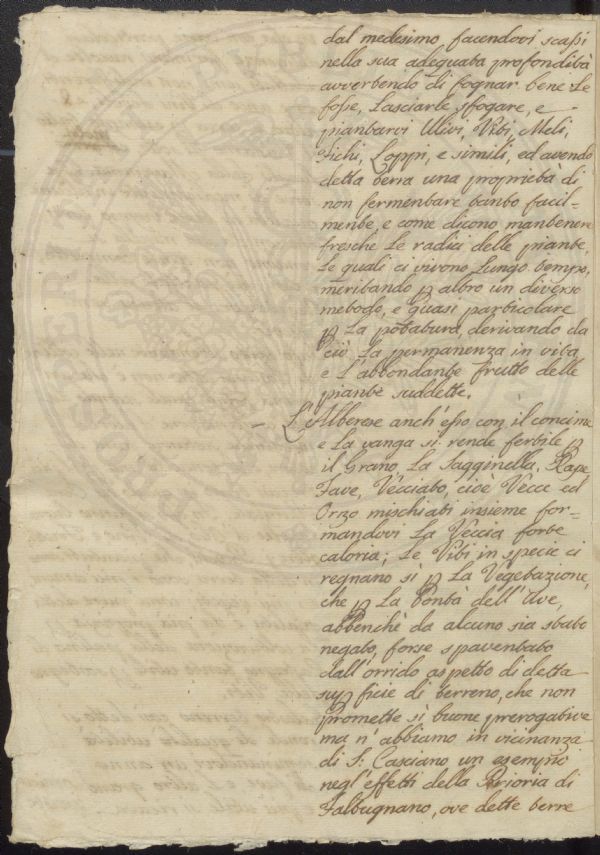 dal medesimo facendovi scassi
nella sua adeguata profondità
avvertendo di fognar bene Le
fosse, Lasciarle sfogare, e
piantarvi Ulivi, Viti, Meli,
Fichi, Loppi, e simili, ed avendo
detta terra una proprietà di
non fermentare tanto facil=
mente, e come dicono mantenere
fresche Le radici delle piante,
Le quali ci vivono Lungo tempo,
meritando p altro un diverso
metodo, e quasi particolare
p La potatura, derivando da
ciò La permanenza in vita
e L'abbondante frutto delle
piante suddette.
– L'Alberese anch'esso con il concime
e La vanga si rende fertile p
il Grano, La Sagginella, Rape
Fave, Vecciato, cioè Vecce ed
Orzo mischiati insieme for=
mandovi La Veccia forte
caloria; Le Viti in specie ci
regnano sì p La Vegetazione,
che p La Bontà dell'Uve,
abbenchè da alcuno sia stato
negato, forse spaventato
dall'orrido aspetto di detta
supficie di terreno, che non
promette sì buone prerogative
ma n'abbiamo in vicinanza
di S: Casciano un esempio
negl'effetti della Prioria di
Falbugnano, ove dette terre